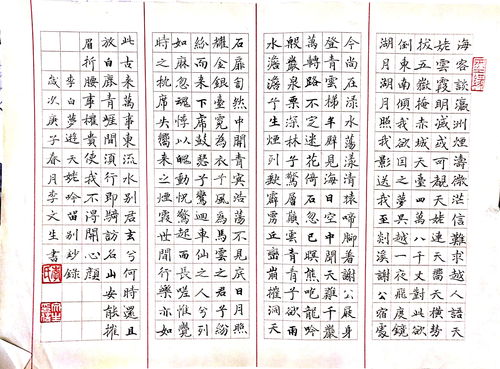 海客談瀛洲煙濤微茫信難求越人語天
姥雲霞明滅或可覩天姥連天向天橫勢
拔五嶽掩赤城天臺四萬八千丈對此欲
倒東南傾我欲因之夢吳越一夜飛度鏡
湖月湖月照我影送我至剡溪謝公宿處
今尚在淥水蕩漾清猿啼脚著謝公屐身
登青雲梯半壁見海日空中聞天雞千巖
萬轉路不定迷花倚石忽已暝熊咆龍吟
殷巖泉栗深林兮驚層巔雲青青兮欲雨
水澹澹兮生煙列缺霹靂丘巒崩摧洞天
石扉訇然中開青冥浩蕩不見底日月照
耀金銀臺霓為衣兮風為馬雲之君兮紛
紛而來下虎鼓瑟兮鸞迴車仙之人兮列
如麻忽魂悸以魄動怳驚起而長嗟惟覺
時之枕席失嚮來之煙霞世間行樂亦如
此古來萬事東流水別君去兮何時還且
放白鹿青崖間須行即騎訪名山安能摧
眉折腰事權貴使我不得開心顏
李白夢遊天姥吟留別抄錄
歲次庚子春月李文生書